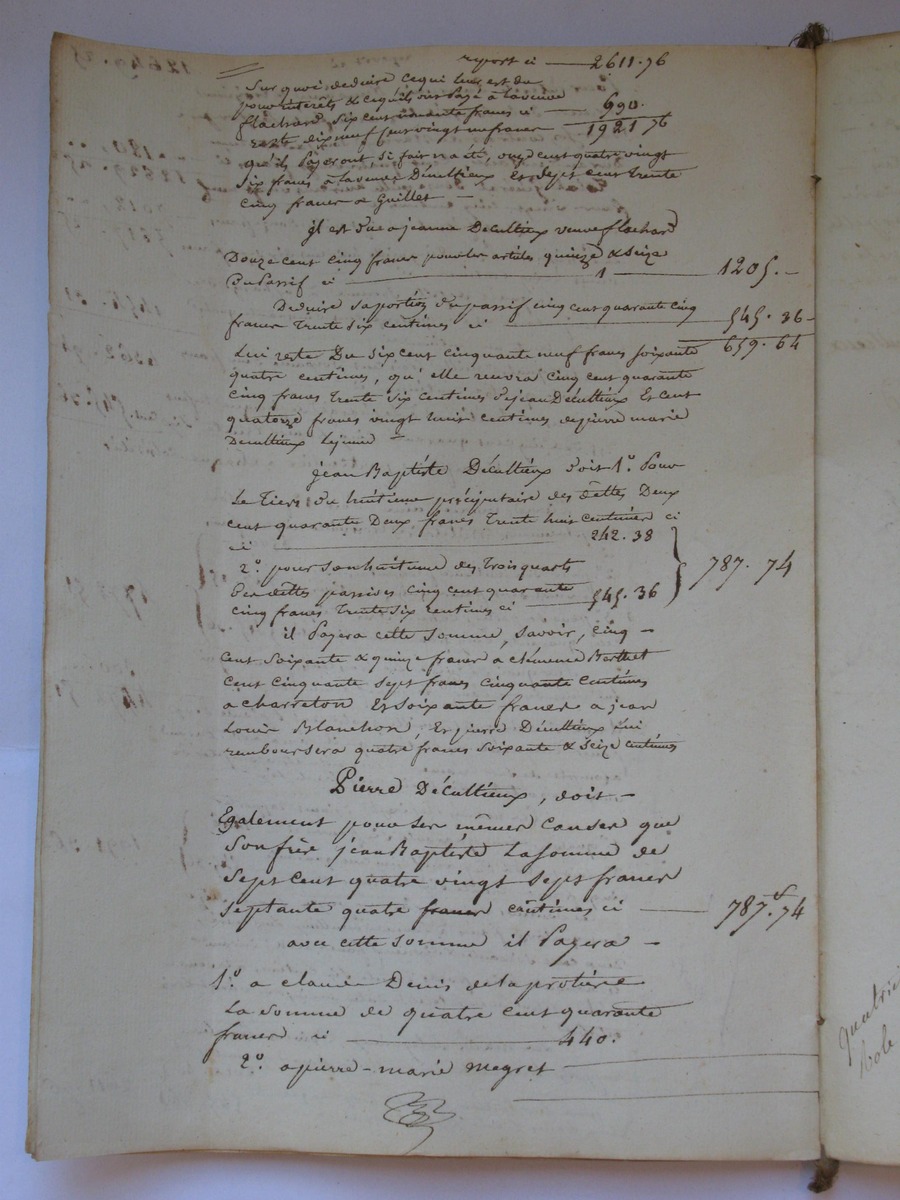 report ci — 2611.76
Sur quoi deduire ce qui leur est du
pour interêts & ce qu'ils ont Payé a la veuve
flachard six cent nonante francs ci — 690.
reste dix neuf cent vingt un francs — 1921 76
qu'ils Payeront, si fait n'a été, onze cent quatre vingt
Six francs a la veuve Décultieux Et Sept cent trente
cinq francs a Guillet —
il est du a jeanne Décultieux veuve flachard
Douze cent cinq francs pour les articles quinze & Seize
Du Passif ci — 1 — 1205. —
Deduire sa portion du passif cinq cent quarante cinq
francs Trente Six centimes ci — 545. 36 —
Lui reste Du six cent cinquante neuf francs soixante — 659. 64
quatre centimes, qu'elle recevra cinq cent quarante
cinq francs trente six centimes de jean Décultieux Et cent
quatorze francs vingt huit centimes de pierre marie
Décultieux Lejeune —
jean Baptiste Décultieux doit 1.° Pour
Le Tiers du huitieme précipitaire des dettes Deux
cent quarante Deux francs Trente huit centimes ci
ci — 242. 38
2.° pour son huitieme des Trois quarts
Des dettes passives cinq cent quarante
cinq francs Trente Six centimes ci — 545. 36
787. 74
il Payera cette somme, savoir, cinq —
cent soixante & quinze francs a clémence Berthet
cent cinquante sept francs cinquante centimes
a charreton Et Soixante francs a jean
Louis Blanchon, Et pierre Décultieux lui
remboursera quatre francs soixante & seize centimes
Pierre Décultieux, doit —
Egalement pour les mêmes causes que
son frère jean Baptiste La somme de
Sept cent quatre vingt sept francs
Septante quatre francs centimes ci — 787.f 74
avec cette somme il Payera —
1.° a claude Denis de la protière
La somme de quatre cent quarante
francs ci — 440.
2.° a pierre-marie Megret —